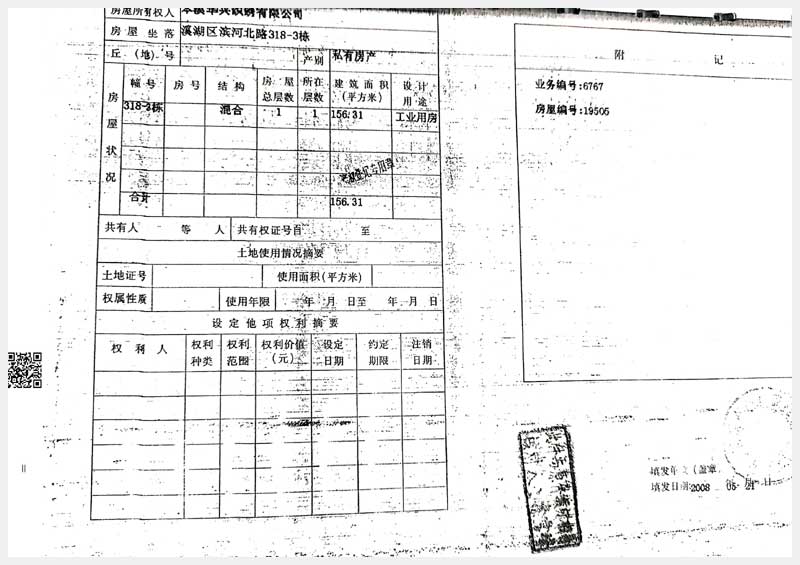 房屋所有权人
房屋坐落 溪湖区滨河北路318-3栋
丘（地）号 产别 私有房产
房屋状况
幢号 房号 结构 房屋总层数 所在层数 建筑面积（平方米） 设计用途
318-3栋 混合 1 1 156.31 工业用房
合计 156.31
共有人 等 人 共有权证号自 至
土地使用情况摘要
土地证号 使用面积（平方米）
权属性质 使用年限 年 月 日至 年 月 日
设定他项权利摘要
权利人 权利种类 权利范围 权利价值（元） 设定日期 约定期限 注销日期
附 记
业务编号:6767
房屋编号:19505
填发日期:2008 05 21 日